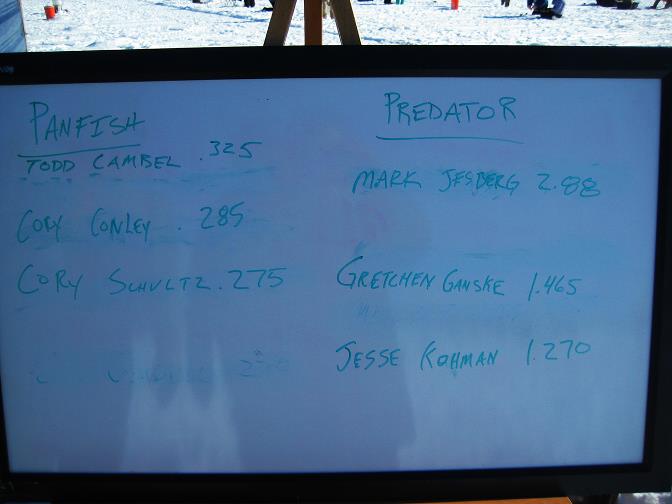 PANFISH
TODD CAMBEL .325
CORY CONLEY .285
CORY SCHULTZ .275
PREDATOR
MARK JESBERG 2.88
GRETCHEN GANSKE 1.465
JESSE KOHMAN 1.270